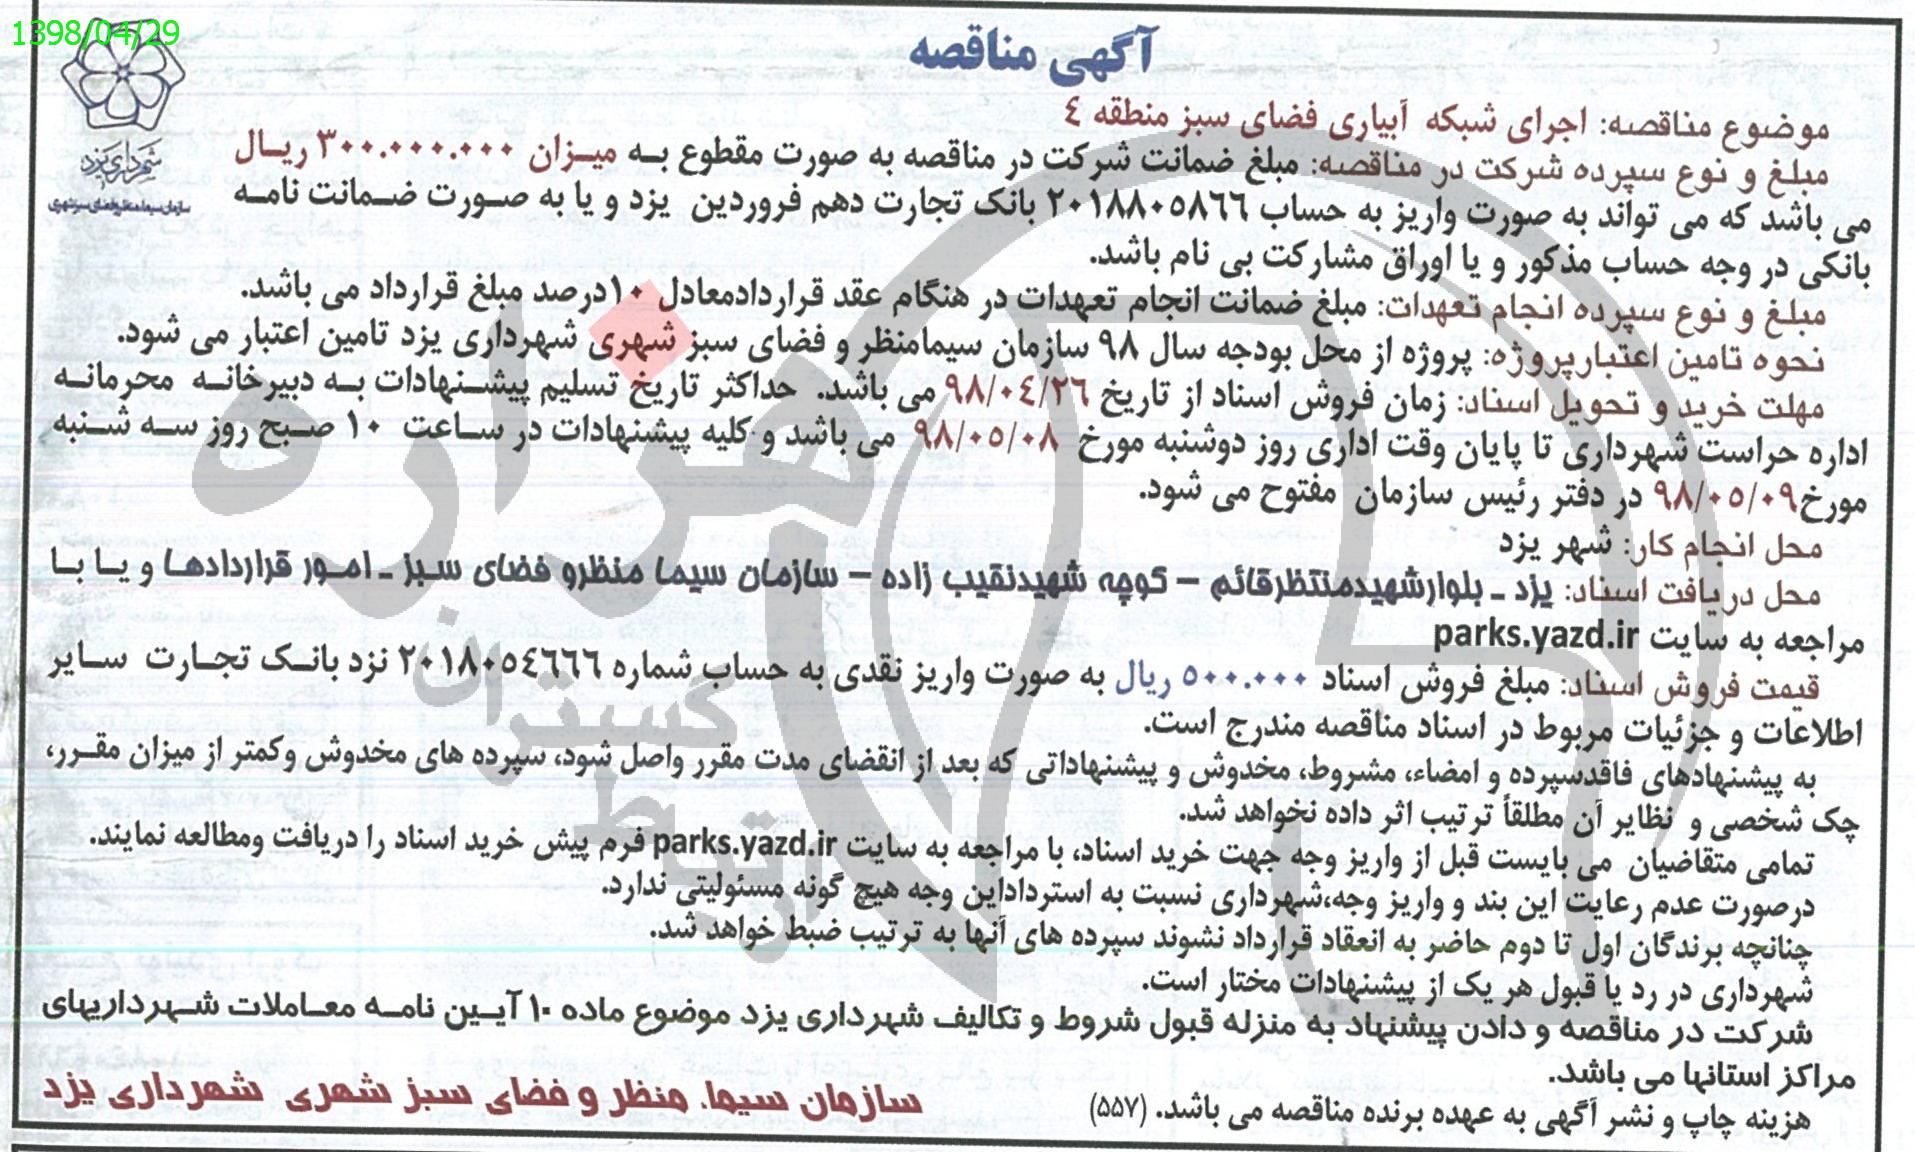 1398/04/29
آگهی مناقصه
شهرداری یزد
سازمان سیما منظر و فضای سبز شهری
موضوع مناقصه: اجرای شبکه آبیاری فضای سبز منطقه ٤
مبلغ و نوع سپرده شرکت در مناقصه: مبلغ ضمانت شرکت در مناقصه به صورت مقطوع به میزان ۳۰۰.۰۰۰.۰۰۰ ریال
می باشد که می تواند به صورت واریز به حساب ۲۰۱۸۸۰۵۸٦٦ بانک تجارت دهم فروردین یزد و یا به صورت ضمانت نامه
بانکی در وجه حساب مذکور و یا اوراق مشارکت بی نام باشد.
مبلغ و نوع سپرده انجام تعهدات: مبلغ ضمانت انجام تعهدات در هنگام عقد قراردادمعادل ۱۰درصد مبلغ قرارداد می باشد.
نحوه تامین اعتبارپروژه: پروژه از محل بودجه سال ۹۸ سازمان سیمامنظر و فضای سبز شهری شهرداری یزد تامین اعتبار می شود.
مهلت خرید و تحویل اسناد: زمان فروش اسناد از تاریخ ۹۸/۰٤/۲٦ می باشد. حداکثر تاریخ تسلیم پیشنهادات به دبیرخانه محرمانه
اداره حراست شهرداری تا پایان وقت اداری روز دوشنبه مورخ ۹۸/۰۵/۰۸ می باشد و کلیه پیشنهادات در ساعت ۱۰ صبح روز سه شنبه
مورخ۹۸/۰۵/۰۹ در دفتر رئیس سازمان مفتوح می شود.
محل انجام کار: شهر یزد
محل دریافت اسناد: یزد ـ بلوارشهیدمنتظرقائم – کوچه شهیدنقیب زاده – سازمان سیما منظرو فضای سبز ـ امور قراردادها و یا با
مراجعه به سایت parks.yazd.ir
قیمت فروش اسناد: مبلغ فروش اسناد ۵۰۰.۰۰۰ ریال به صورت واریز نقدی به حساب شماره ۲۰۱۸۰۵٤٦٦٦ نزد بانک تجارت سایر
اطلاعات و جزئیات مربوط در اسناد مناقصه مندرج است.
به پیشنهادهای فاقدسپرده و امضاء، مشروط، مخدوش و پیشنهاداتی که بعد از انقضای مدت مقرر واصل شود، سپرده های مخدوش وکمتر از میزان مقرر،
چک شخصی و نظایر آن مطلقاً ترتیب اثر داده نخواهد شد.
تمامی متقاضیان می بایست قبل از واریز وجه جهت خرید اسناد، با مراجعه به سایت parks.yazd.ir فرم پیش خرید اسناد را دریافت ومطالعه نمایند.
درصورت عدم رعایت این بند و واریز وجه،شهرداری نسبت به استرداداین وجه هیچ گونه مسئولیتی ندارد.
چنانچه برندگان اول تا دوم حاضر به انعقاد قرارداد نشوند سپرده های آنها به ترتیب ضبط خواهد شد.
شهرداری در رد یا قبول هر یک از پیشنهادات مختار است.
شرکت در مناقصه و دادن پیشنهاد به منزله قبول شروط و تکالیف شهرداری یزد موضوع ماده ۱۰ آیین نامه معاملات شهرداریهای
مراکز استانها می باشد.
هزینه چاپ و نشر آگهی به عهده برنده مناقصه می باشد. (۵۵۷)
سازمان سیما، منظر و فضای سبز شهری شهرداری یزد
هزاره
گستران
ارتباط